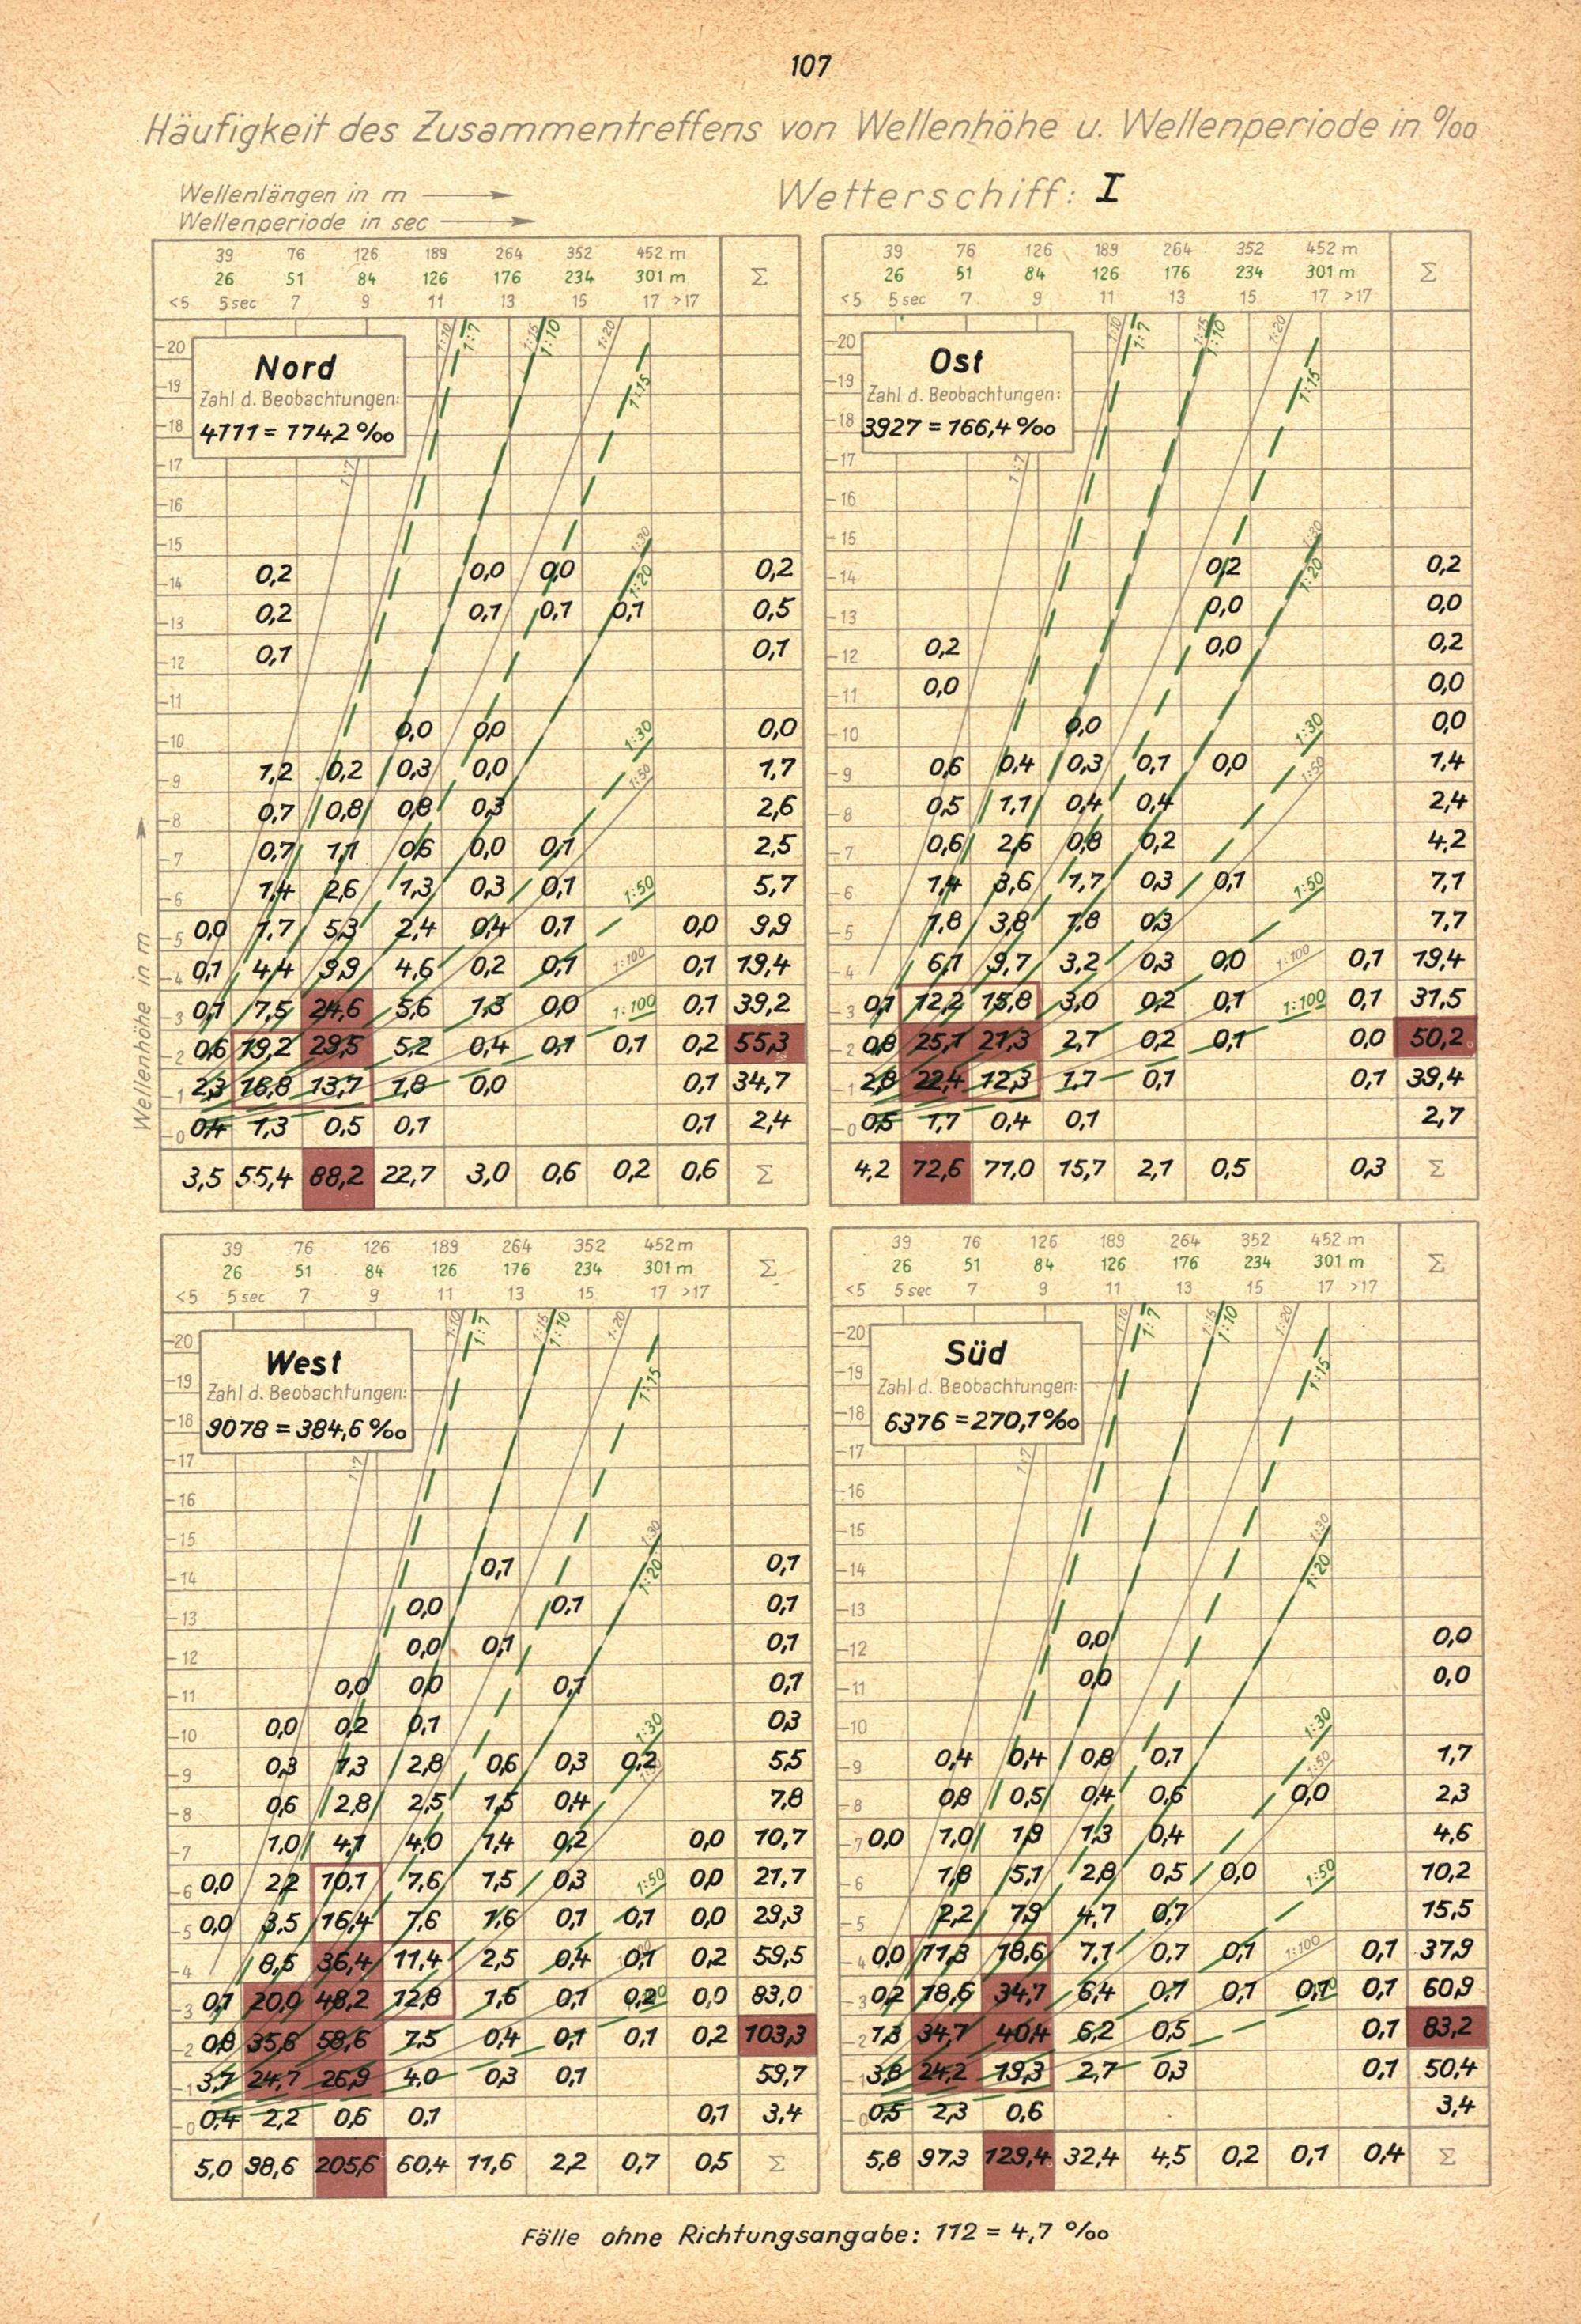 107
Häufigkeit des Zusammentreffens von Wellenhöhe u. Wellenperiode in ‰
Wellenlängen in m
Wellenperiode in sec
Wetterschiff: I
Wellenhöhe in m
39 76 126 189 264 352 452 m
26 51 84 126 176 234 301 m Σ
<5 5 sec 7 9 11 13 15 17 >17
1:10 1:7 1:15 1:10 1:20
20
Nord
19
Zahl d. Beobachtungen: 1:15
18
4111 = 174,2 ‰
17 1:7
16
15 1:30
14 0,2 0,0 0,0 1:20 0,2
13 0,2 0,1 0,1 0,1 0,5
12 0,1 0,1
11
10 0,0 0,0 1:30 0,0
9 1,2 0,2 0,3 0,0 1:50 1,7
8 0,7 0,8 0,8 0,3 2,6
7 0,7 1,1 0,6 0,0 0,1 2,5
6 1,4 2,6 1,3 0,3 0,1 1:50 5,7
5 0,0 1,7 5,3 2,4 0,4 0,1 0,0 9,9
4 0,1 4,4 9,9 4,6 0,2 0,1 1:100 0,1 19,4
3 0,1 7,5 24,6 5,6 1,3 0,0 1:100 0,1 39,2
2 0,6 19,2 29,5 5,2 0,4 0,1 0,1 0,2 55,3
1 2,3 16,8 13,7 1,8 0,0 0,1 34,7
0 0,4 1,3 0,5 0,1 0,1 2,4
3,5 55,4 88,2 22,7 3,0 0,6 0,2 0,6 Σ
39 76 126 189 264 352 452 m
26 51 84 126 176 234 301 m Σ
<5 5 sec 7 9 11 13 15 17 >17
1:10 1:7 1:15 1:10 1:20
20
Ost
19
Zahl d. Beobachtungen: 1:15
18
3927 = 166,4 ‰
17 1:7
16
15 1:30
14 0,2 1:20 0,2
13 0,0 0,0
12 0,2 0,0 0,2
11 0,0 0,0
10 0,0 1:30 0,0
9 0,6 0,4 0,3 0,1 0,0 1:50 1,4
8 0,5 1,1 0,4 0,4 2,4
7 0,6 2,6 0,8 0,2 4,2
6 1,4 3,6 1,7 0,3 0,1 1:50 7,1
5 1,8 3,8 1,8 0,3 7,7
4 6,1 9,7 3,2 0,3 0,0 1:100 0,1 19,4
3 0,1 12,2 15,8 3,0 0,2 0,1 1:100 0,1 31,5
2 0,8 25,1 21,3 2,7 0,2 0,1 0,0 50,2
1 2,8 22,4 12,3 1,7 0,1 0,1 39,4
0 0,5 1,7 0,4 0,1 2,7
4,2 72,6 71,0 15,7 2,1 0,5 0,3 Σ
39 76 126 189 264 352 452 m
26 51 84 126 176 234 301 m Σ
<5 5 sec 7 9 11 13 15 17 >17
1:10 1:7 1:15 1:10 1:20
20
West
19
Zahl d. Beobachtungen: 1:15
18
9078 = 384,6 ‰
17 1:7
16
15 1:30
14 0,1 1:20 0,1
13 0,0 0,1 0,1
12 0,0 0,1 0,1
11 0,0 0,0 0,1 0,1
10 0,0 0,2 0,1 1:30 0,3
9 0,3 1,3 2,8 0,6 0,3 0,2 5,5
8 0,6 2,8 2,5 1,5 0,4 7,8
7 1,0 4,1 4,0 1,4 0,2 0,0 10,7
6 0,0 2,2 10,1 7,6 1,5 0,3 1:50 0,0 21,7
5 0,0 3,5 16,4 7,6 1,6 0,1 0,1 0,0 29,3
4 8,5 36,4 11,4 2,5 0,4 0,1 0,2 59,5
3 0,1 20,0 48,2 12,8 1,6 0,1 0,2 0,0 83,0
2 0,8 35,6 58,6 7,5 0,4 0,1 0,1 0,2 103,3
1 3,7 24,7 26,9 4,0 0,3 0,1 59,7
0 0,4 2,2 0,6 0,1 0,1 3,4
5,0 98,6 205,6 60,4 11,6 2,2 0,7 0,5 Σ
39 76 126 189 264 352 452 m
26 51 84 126 176 234 301 m Σ
<5 5 sec 7 9 11 13 15 17 >17
1:10 1:7 1:15 1:10 1:20
20
Süd
19
Zahl d. Beobachtungen: 1:15
18
6376 = 270,1 ‰
17 1:7
16
15 1:30
14 1:20
13
12 0,0 0,0
11 0,0 0,0
10 1:30
9 0,4 0,4 0,8 0,1 1:50 1,7
8 0,8 0,5 0,4 0,6 0,0 2,3
7 0,0 1,0 1,9 1,3 0,4 4,6
6 1,8 5,1 2,8 0,5 0,0 1:50 10,2
5 2,2 7,9 4,7 0,7 15,5
4 0,0 11,3 18,6 7,1 0,7 0,1 1:100 0,1 37,9
3 0,2 18,6 34,7 6,4 0,7 0,1 0,1 0,1 60,9
2 1,3 34,7 40,4 6,2 0,5 0,1 83,2
1 3,8 24,2 19,3 2,7 0,3 0,1 50,4
0 0,5 2,3 0,6 3,4
5,8 97,3 129,4 32,4 4,5 0,2 0,1 0,4 Σ
Fälle ohne Richtungsangabe: 112 = 4,7 ‰